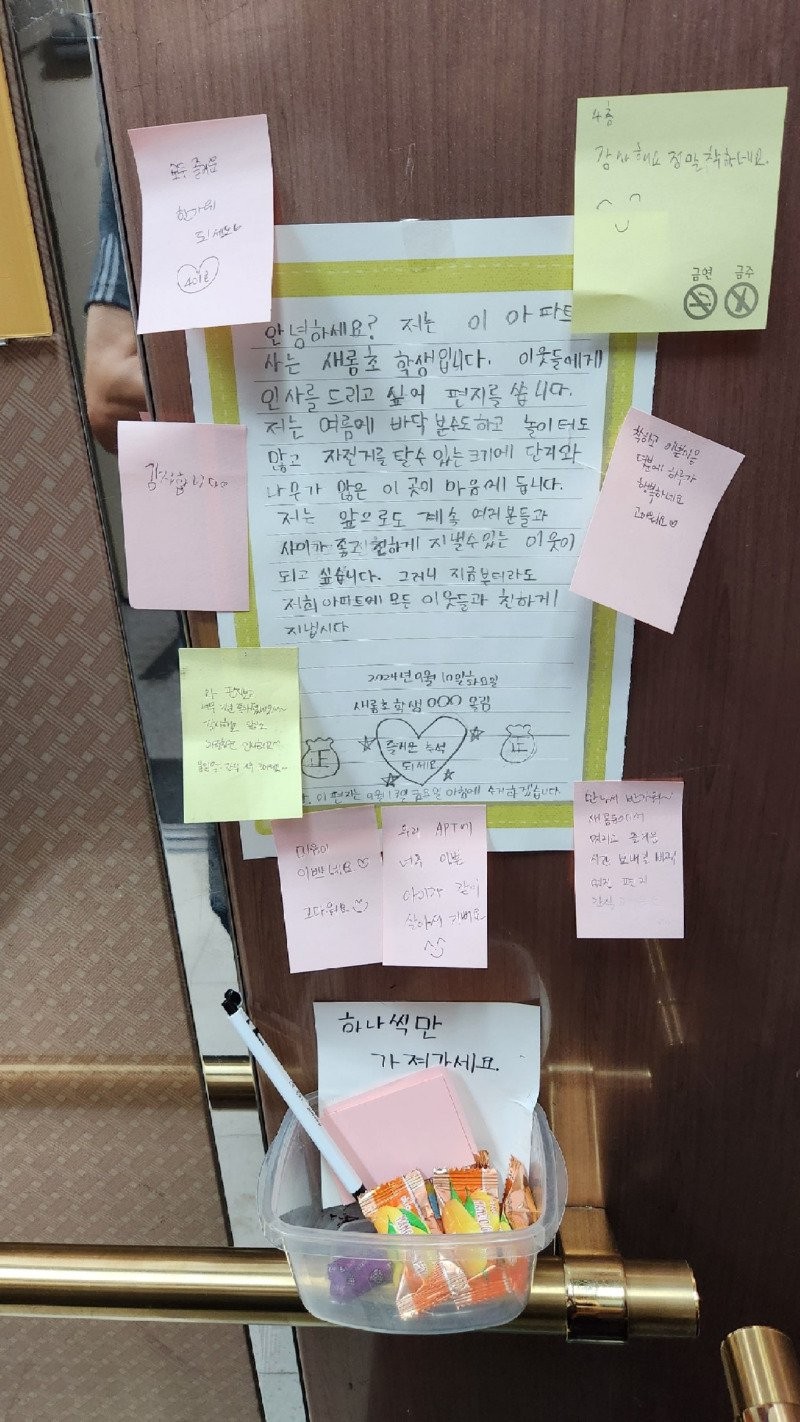 모두 즐거운
한가위
되세요
401호
4층
감사해요 정말 착하네요.
금연 금주
안녕하세요? 저는 이 아파트
사는 새롬초 학생입니다. 이웃들에게
인사를 드리고 싶어 편지를 씁니다.
저는 여름에 바닥 분수도하고 놀이터도
많고 자전거를 탈수 있는 크기에 단지와
나무가 많은 이 곳이 마음에 듭니다.
저는 앞으로도 계속 여러분들과
사이가 좋고 친하게 지낼수있는 이웃이
되고 싶습니다. 그러니 지금부터라도
저희아파트에 모든 이웃들과 친하게
지냅시다
2024년 9월 10일 화요일
새롬초학생 OOO 올림
즐거운 추석
되세요
이 편지는 9월 13일 금요일 아침에 수거하겠습니다.
감사합니다
착하고 이쁜마음
덕분에 하루가
행복하네요
고마워요
마음이
이쁘네요
고마워요
우리 APT에
너무 이쁜
아이가 같이
살아서 기뻐요
만나서 반가워
즐거운
시간
편지
하나씩만
가져가세요.